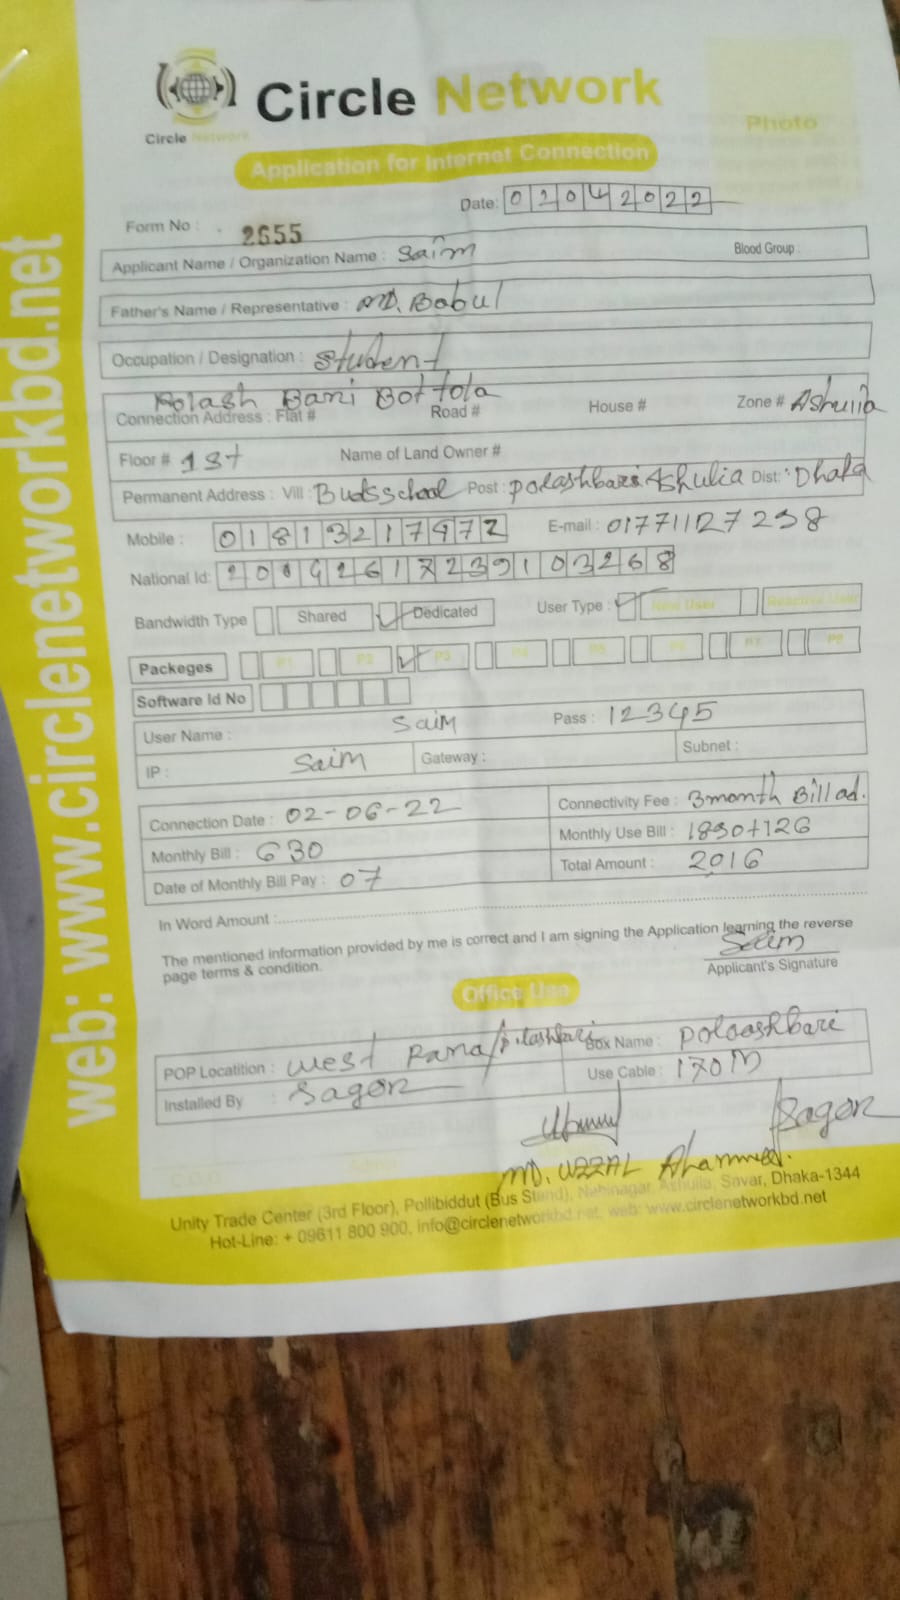 Circle Network
Circle Network
Photo
Application for Internet Connection
Date: 02042022
Form No : 2655
Applicant Name / Organization Name : Saim Blood Group :
Father's Name / Representative : MD. Babul
Occupation / Designation : Student
Polash Bari Bottola
Connection Address : Flat # Road # House # Zone # Ashulia
Floor # 1st Name of Land Owner #
Permanent Address : Vill : Budsschool Post : polashbari Ashulia Dist: Dhaka
Mobile : 01813217472 E-mail : 01771127238
National Id:
Bandwidth Type Shared Dedicated User Type : New User Reactive User
Packeges P1 P2 P3 P4 P5 P6 P7 P8
Software Id No
User Name : Saim Pass : 12345
IP : Saim Gateway : Subnet :
Connection Date : 02-06-22 Connectivity Fee : 3month Bill ad.
Monthly Bill : 630 Monthly Use Bill : 1890+126
Date of Monthly Bill Pay : 07 Total Amount : 2016
In Word Amount :
The mentioned information provided by me is correct and I am signing the Application learning the reverse
page terms & condition.
Saim
Applicant's Signature
Office Use
POP Locatition : west Para/ Box Name : polaoshbari
Installed By : Sagor Use Cable : 170M
Sagor
MD. UZZAL Ahammed.
Unity Trade Center (3rd Floor), Pollibiddut (Bus Stand), Nabinagar, Ashulia, Savar, Dhaka-1344
Hot-Line: + 09611 800 900, info@circlenetworkbd.net, web: www.circlenetworkbd.net
web: www.circlenetworkbd.net